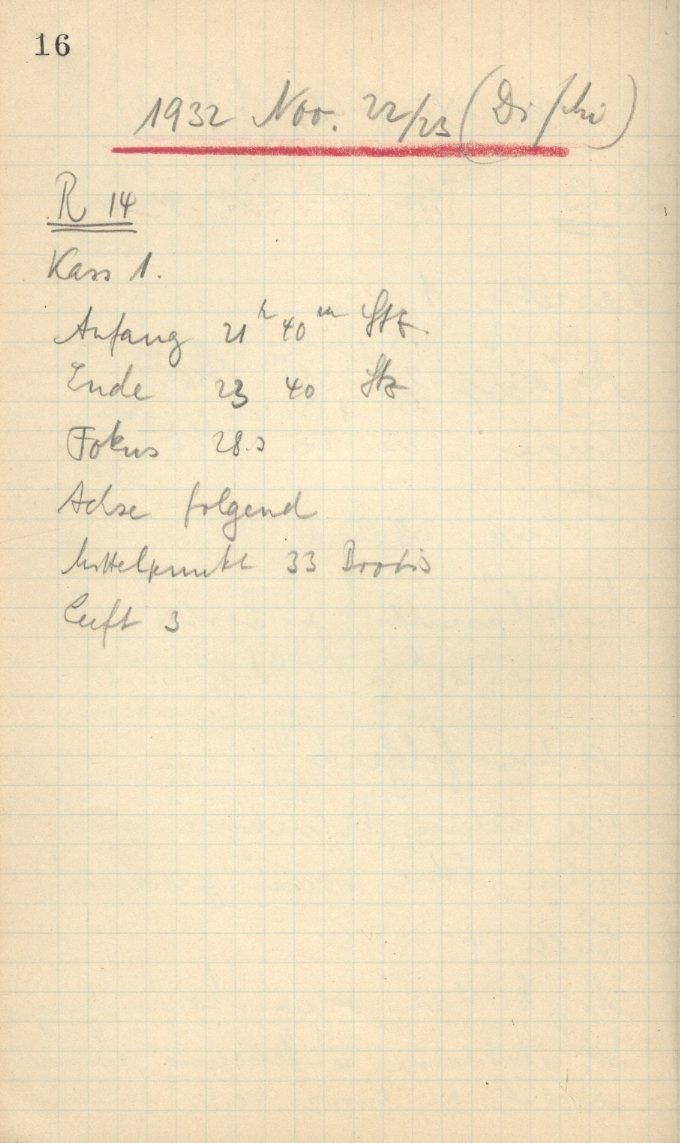 16
1932 Nov. 22/23 (Di/Mi)
R 14
Kass 1.
Anfang 21h 40m Stz.
Ende 23 40 Stz
Fokus 28.5
Achse folgend
Mittelpunkt 33
Luft 3